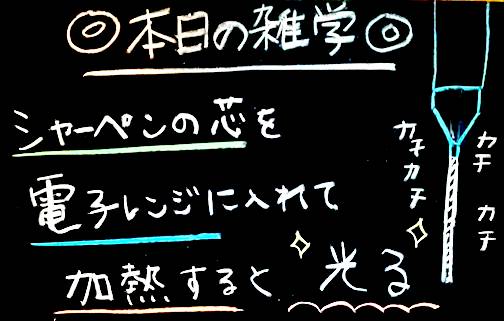 ◎本日の雑学◎
シャーペンの芯を
電子レンジに入れて
加熱すると光る
カチカチ
カチ
カチ